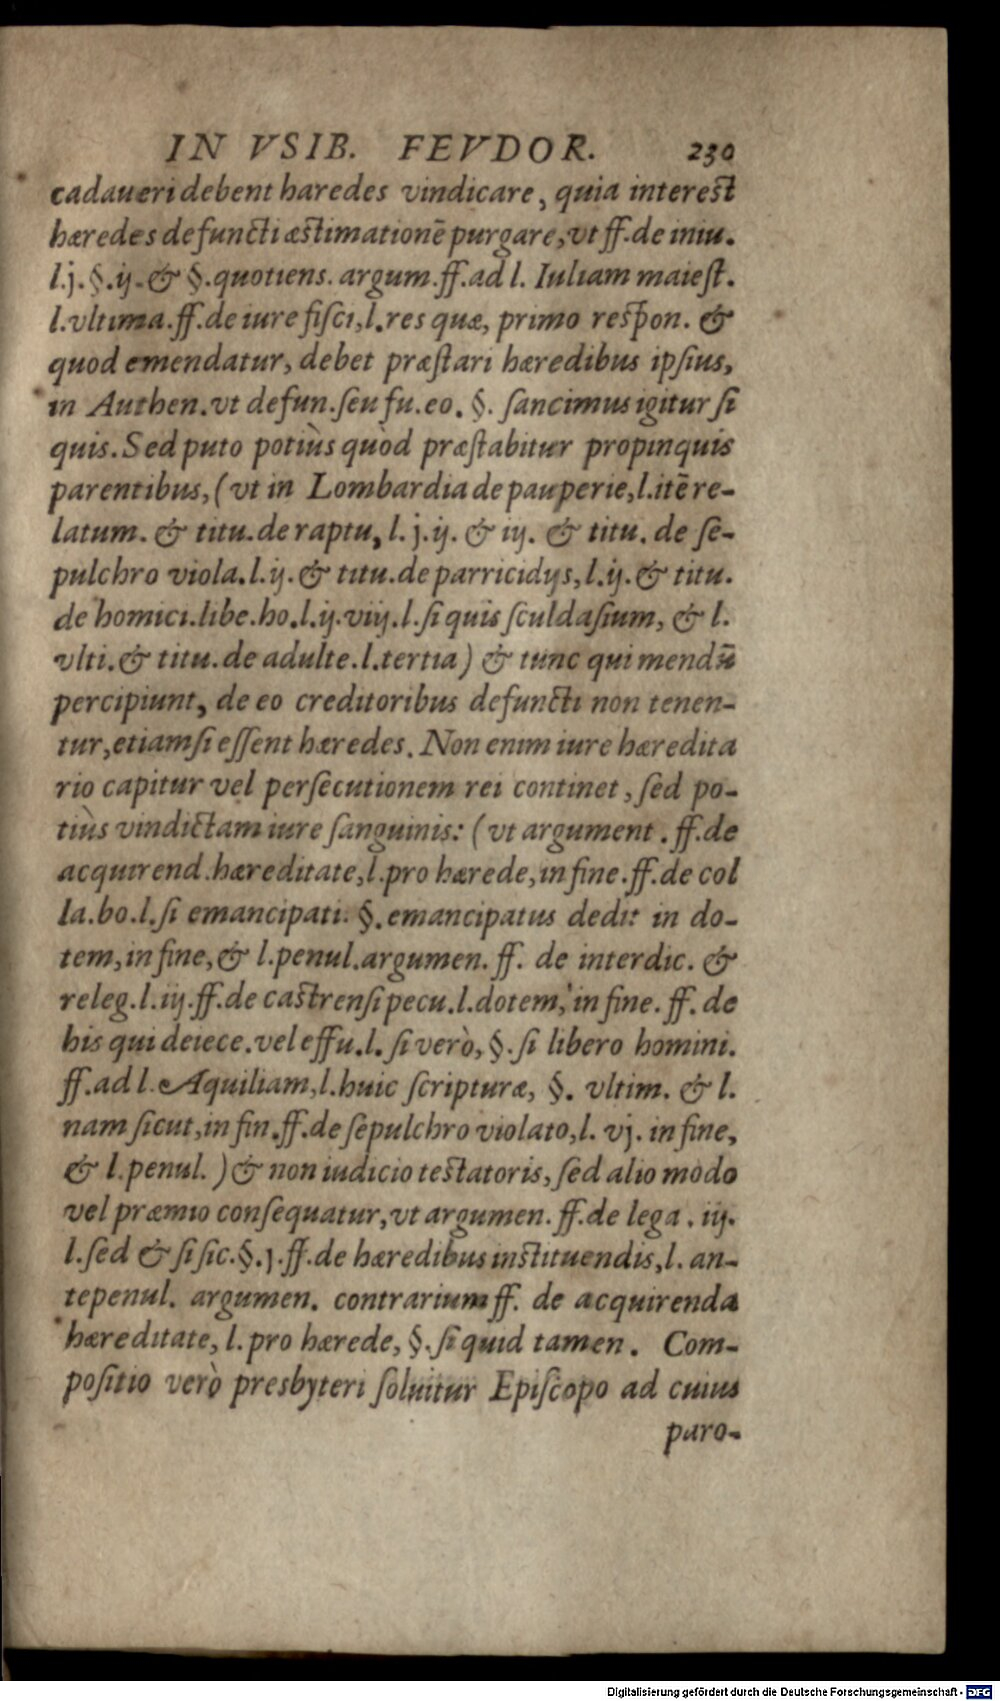 IN VSIB. FEVDOR. 230
cadaueri debent haredes vindicare, quia interest
hæredes defuncti æstimationē purgare, vt ff. de iniu.
l. j. §. ij. & §. quotiens. argum. ff. ad l. Iuliam maiest.
l. vltima. ff. de iure fisci, l. res quæ, primo respon. &
quod emendatur, debet præstari hæredibus ipsius,
in Authen. vt defun. seu fu. eo. §. sancimus igitur si
quis. Sed puto potiùs quòd præstabitur propinquis
parentibus, (vt in Lombardia de pauperie, l. itē re-
latum. & titu. de raptu, l. j. ij. & iij. & titu. de se-
pulchro viola. l. ij. & titu. de parricidijs, l. ij. & titu.
de homici. libe. ho. l. ij. viij. l. si quis sculdasium, & l.
vlti. & titu. de adulte. l. tertia) & tunc qui mendū
percipiunt, de eo creditoribus defuncti non tenen-
tur, etiamsi essent hæredes. Non enim iure hæredita
rio capitur vel persecutionem rei continet, sed po-
tiùs vindictam iure sanguinis: (vt argument. ff. de
acquirend. hæreditate, l. pro hærede, in fine. ff. de col
la. bo. l. si emancipati. §. emancipatus dedit in do-
tem, in fine, & l. penul. argumen. ff. de interdic. &
releg. l. iij. ff. de castrensi pecu. l. dotem, in fine. ff. de
his qui deiece. vel effu. l. si verò, §. si libero homini.
ff. ad l. Aquiliam, l. huic scripturæ, §. vltim. & l.
nam sicut, in fin. ff. de sepulchro violato, l. vj. in fine,
& l. penul. ) & non iudicio testatoris, sed alio modo
vel præmio consequatur, vt argumen. ff. de lega. iij.
l. sed & si sic. §. j. ff. de hæredibus instituendis, l. an-
tepenul. argumen. contrarium ff. de acquirenda
hæreditate, l. pro hærede, §. si quid tamen. Com-
positio verò presbyteri soluitur Episcopo ad cuius
paro-
Digitalisierung gefördert durch die Deutsche Forschungsgemeinschaft - DFG